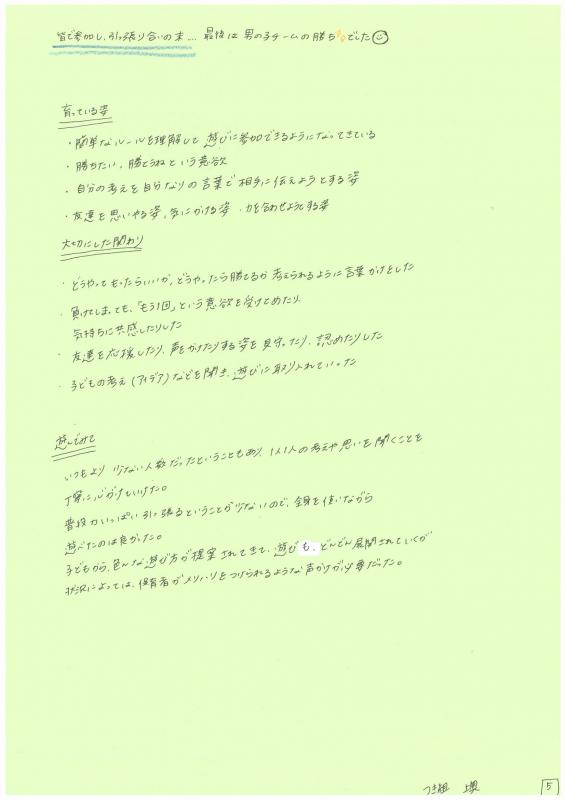 皆で参加し、引っ張り合いの末… 最後は男の子チームの勝ちでした
育っている姿
・簡単なルールを理解して遊びに参加できるようになってきている
・勝ちたい、勝とうねという意欲
・自分の考えを自分なりの言葉で相手に伝えようとする姿
・友達を思いやる姿、気にかける姿・力を合わせようとする姿
大切にした関わり
・どうやってもったらいいか、どうやったら勝てるか考えられるように言葉がけをした
・負けてしまっても、「もう1回」という意欲を受けとめたり、
気持ちに共感したりした
・友達を応援したり、声をかけたりする姿を見守ったり、認めたりした
・子どもの考え(アイデア)などを聞き、遊びに取り入れていった
遊んでみて
いつもより少ない人数だったということもあり、1人1人の考えや思いを聞くことを
丁寧に心がけていけた。
普段力いっぱい引っ張るということが少ないので、全身を使いながら
遊べたのは良かった。
子どもから、色んな遊び方が提案されてきて、遊びも、どんどん展開されていくが
状況によっては、保育者がメリハリをつけられるような声かけが必要だった。
つき組
5